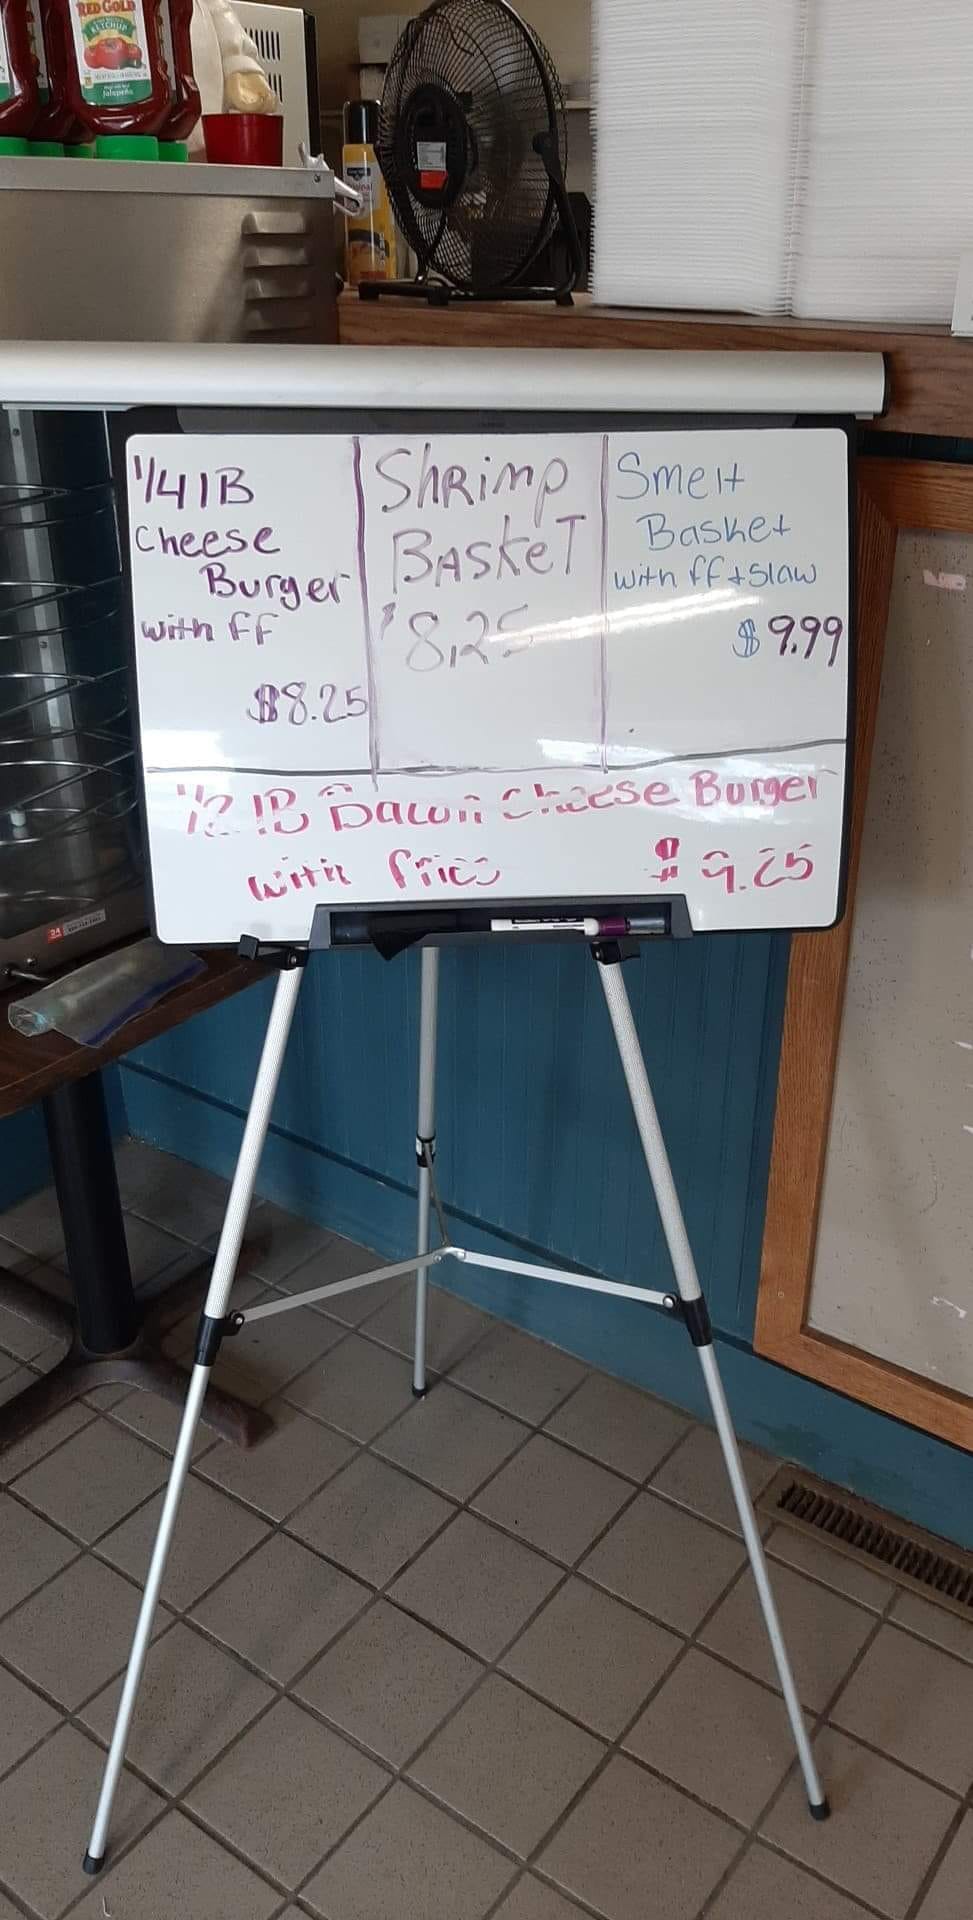 RED GOLD
KETCHUP
Jalapeño
1/4 lB
Cheese
Burger
with ff
$8.25
ShRimp
BASKET
$8.25
Smelt
Basket
with ff + Slaw
$9.99
1/2 lB Bacon Cheese Burger
with fries $9.25